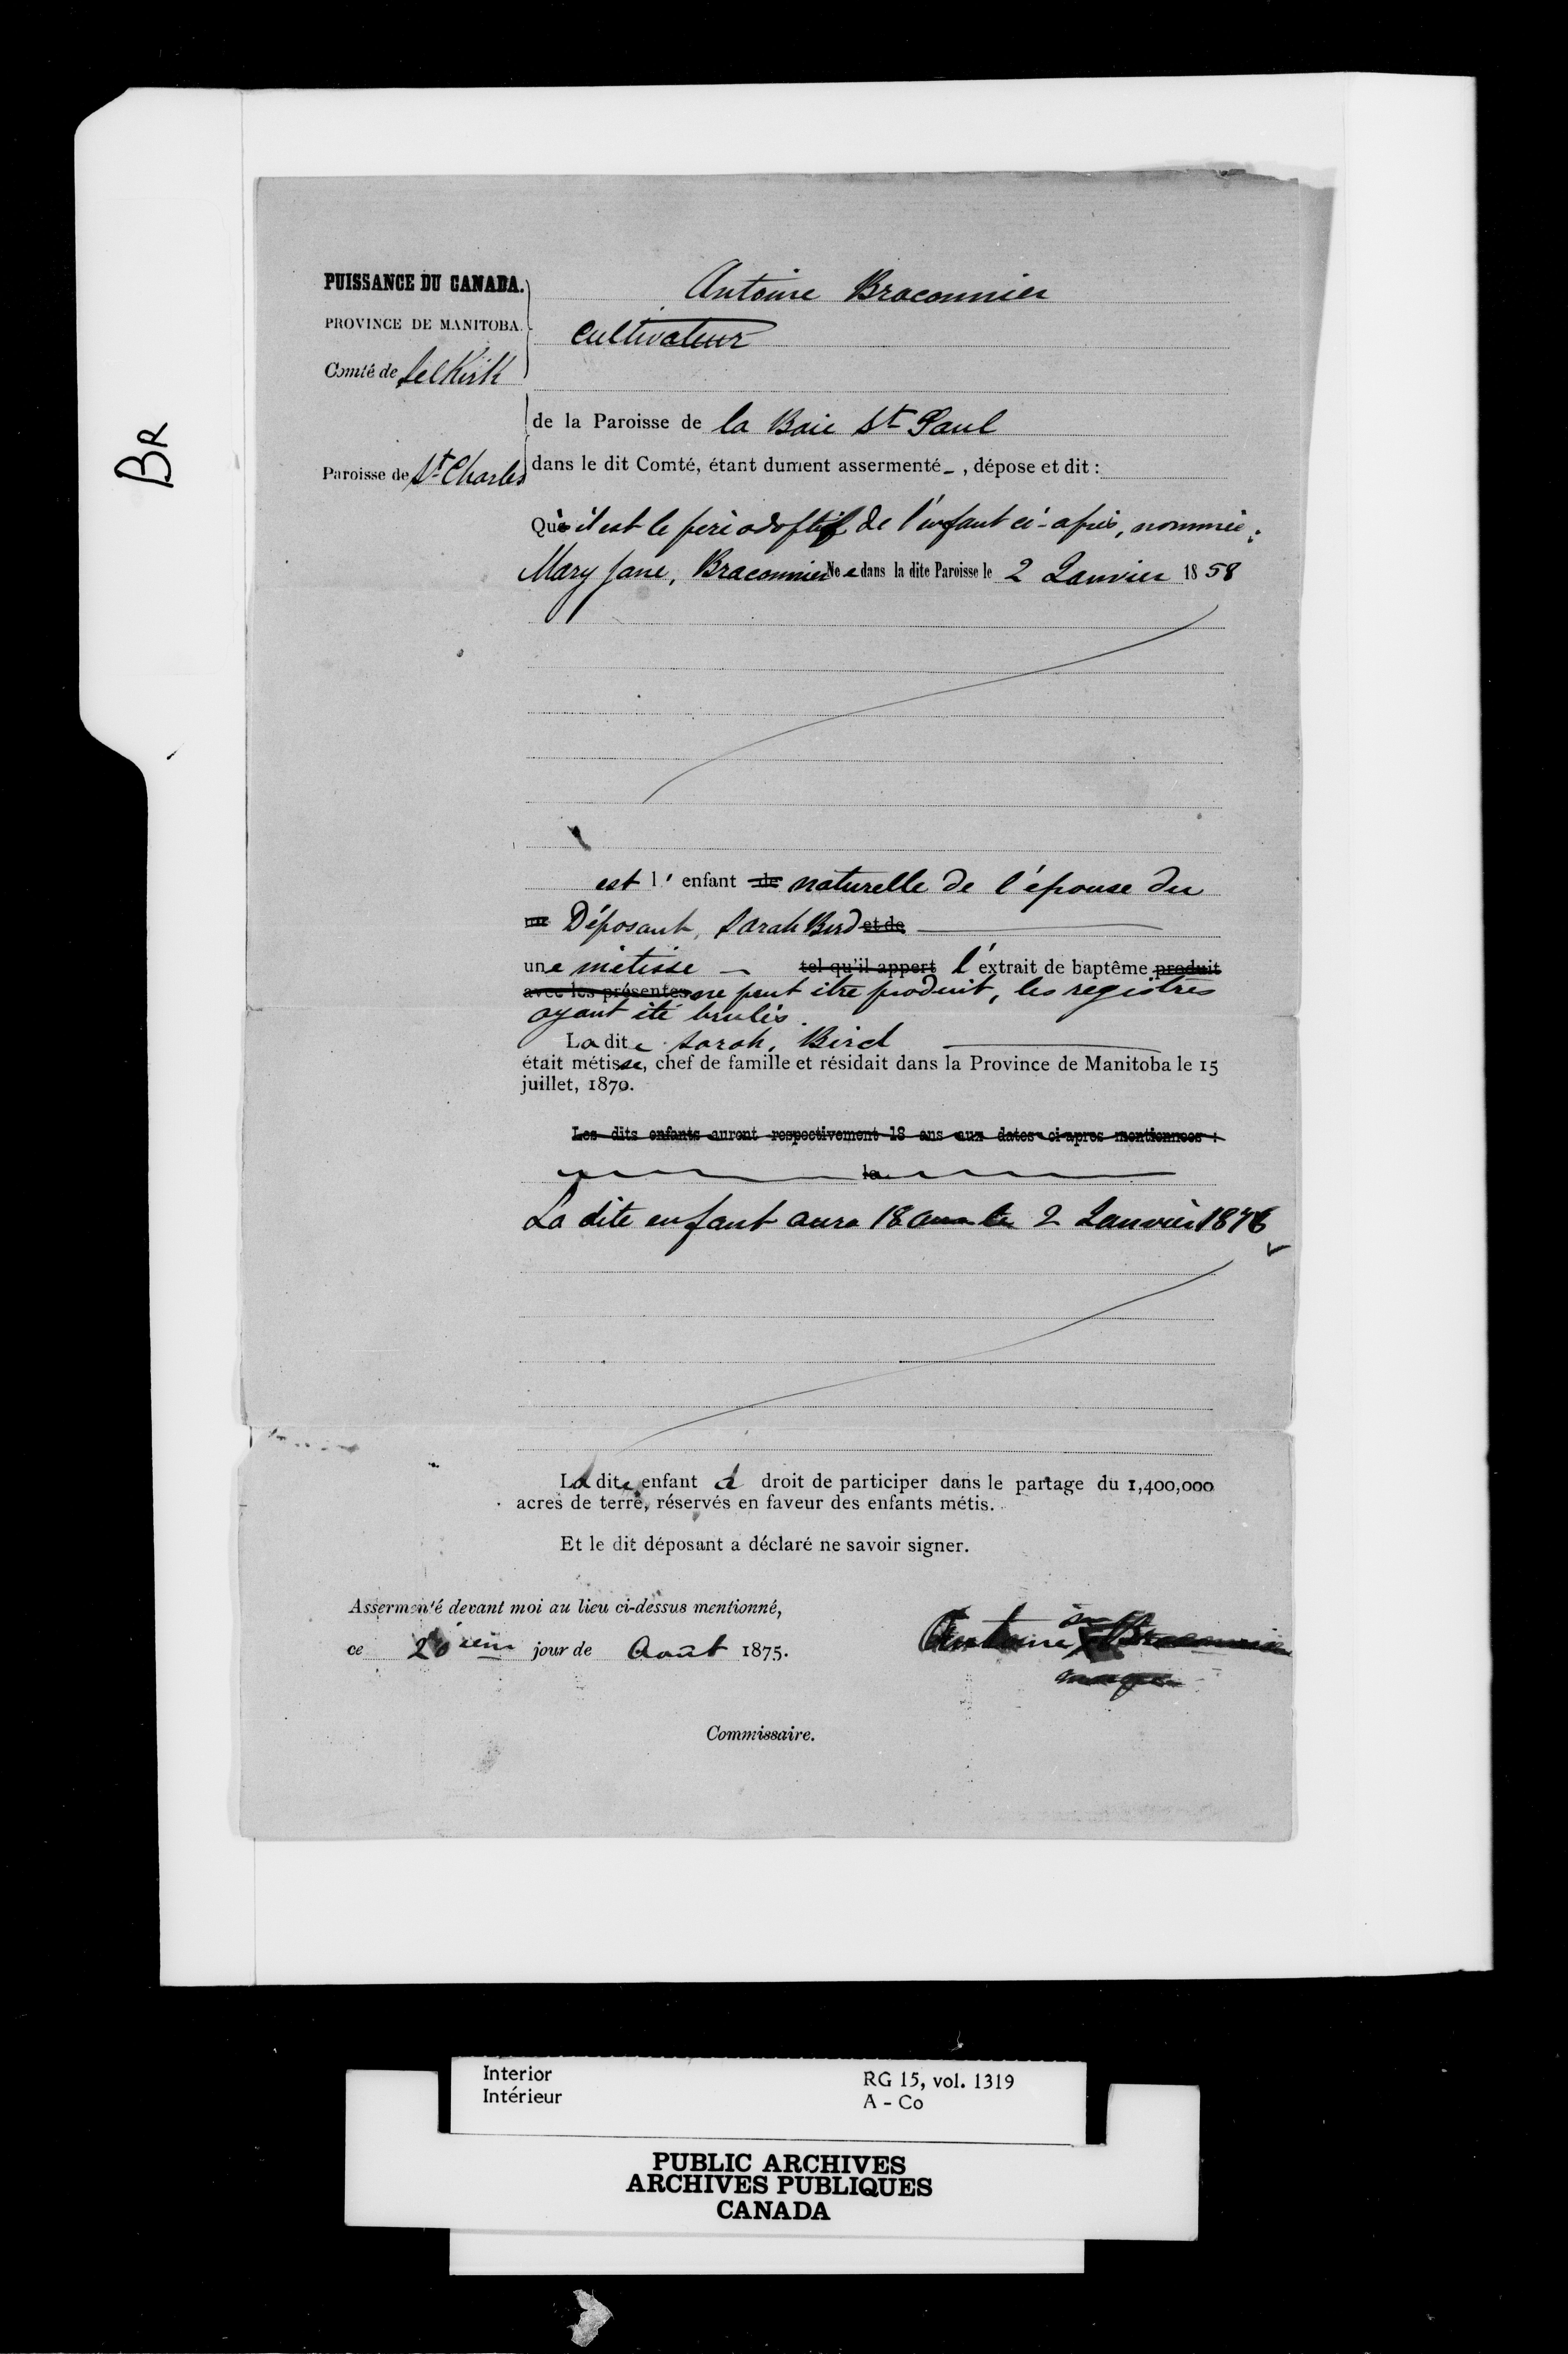 BR
PUISSANCE DU CANADA.
PROVINCE DE MANITOBA.
Comté de Selkirk
Paroisse de St Charles
Antoine Braconnier
Cultivateur
de la Paroisse de la Baie St Paul
dans le dit Comté, étant dument assermenté - , dépose et dit :
Qu'il est le père adoptif de l'enfant ci-après, nommée:
Mary Jane, Braconnier Née dans la dite Paroisse le 2 Janvier 1858
est l' enfant de naturelle de l'épouse du
Déposant, Sarah Bird et de
une métisse - tel qu'il appert l'extrait de baptême produit
avec les présentes ne peut être produit, les registres
ayant été brulés.
La dite Sarah, Bird
était métisse, chef de famille et résidait dans la Province de Manitoba le 15
juillet, 1870.
Les dits enfants auront respectivement 18 ans aux dates ci-apres mentionnees :
le
La dite enfant aura 18 ans le 2 Janvier 1876
La dite enfant a droit de participer dans le partage du 1,400,000
acres de terre, réservés en faveur des enfants métis.
Et le dit déposant a déclaré ne savoir signer.
Assermenté devant moi au lieu ci-dessus mentionné,
ce 20ième jour de Août 1875.
Antoine X Braconnier
Commissaire.
Interior
Intérieur
RG 15, vol. 1319
A - Co
PUBLIC ARCHIVES
ARCHIVES PUBLIQUES
CANADA